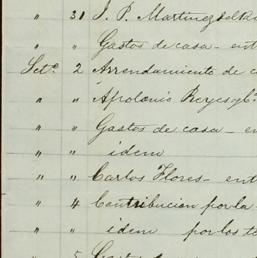 " 31 J. P. Martinez
" " Gastos de casa – ent
Sete. 2 Arrendamiento de c
" " Apolonio Reyes y
" " Gastos de casa – en
" " idem
" " Carlos Flores – ent
" 4 Contribucion por la
" " idem por los t
" 5